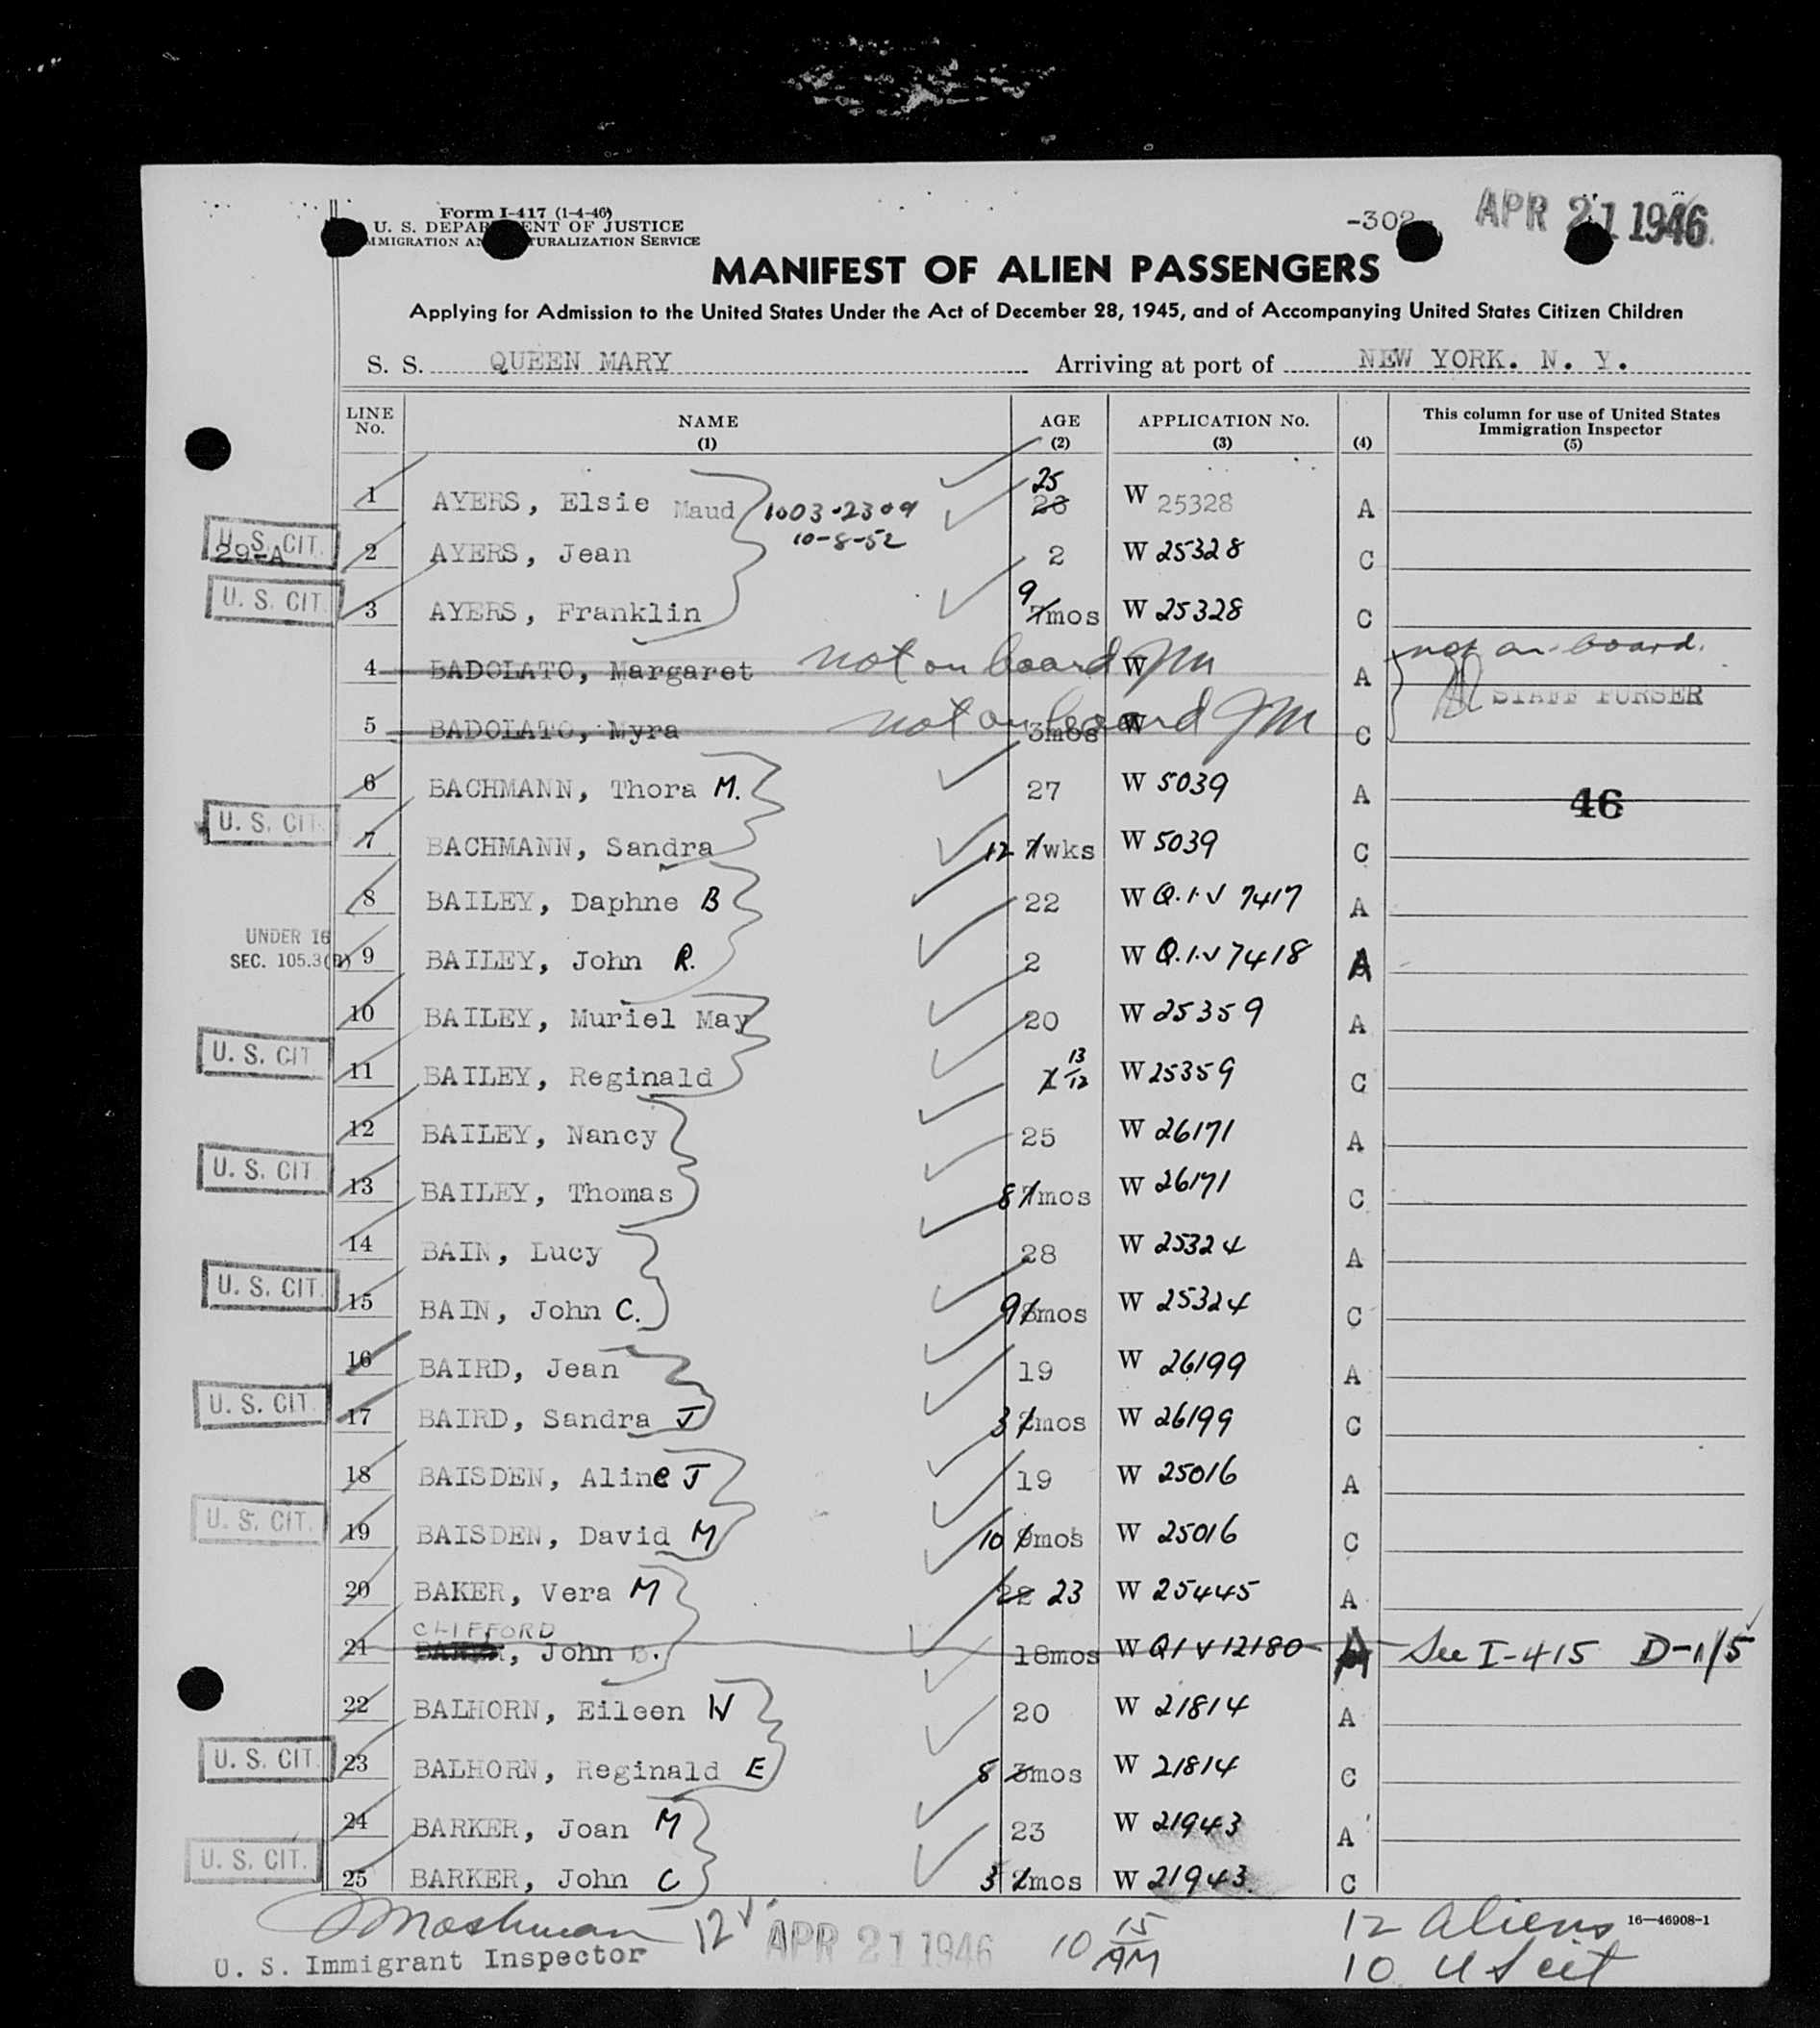 Form I-417 (1-4-46)
U. S. DEPARTMENT OF JUSTICE
IMMIGRATION AND NATURALIZATION SERVICE
-302-
APR 21 1946
MANIFEST OF ALIEN PASSENGERS
Applying for Admission to the United States Under the Act of December 28, 1945, and of Accompanying United States Citizen Children
S. S. QUEEN MARY Arriving at port of NEW YORK. N. Y.
LINE No. NAME (1) AGE (2) APPLICATION No. (3) (4) This column for use of United States Immigration Inspector (5)
1 AYERS, Elsie Maud 1003-2309 25 W 25328 A
10-8-52
U. S. CIT. 29-A 2 AYERS, Jean 2 W 25328 C
U. S. CIT. 3 AYERS, Franklin 9 7mos W 25328 C
4 BADOLATO, Margaret not on board W A not on board.
STAFF PURSER
5 BADOLATO, Myra not on board 3mos W C
6 BACHMANN, Thora M. 27 W 5039 A 46
U. S. CIT. 7 BACHMANN, Sandra 12 7wks W 5039 C
8 BAILEY, Daphne B 22 W Q.I.V 7417 A
UNDER 16 SEC. 105.3(B) 9 BAILEY, John R. 2 W Q.I.V 7418 A
10 BAILEY, Muriel May 20 W 25359 A
U. S. CIT 11 BAILEY, Reginald 13/12 W 25359 C
12 BAILEY, Nancy 25 W 26171 A
U. S. CIT 13 BAILEY, Thomas 8 7mos W 26171 C
14 BAIN, Lucy 28 W 25324 A
U. S. CIT. 15 BAIN, John C. 9 8mos W 25324 C
16 BAIRD, Jean 19 W 26199 A
U. S. CIT. 17 BAIRD, Sandra J 3 2mos W 26199 C
18 BAISDEN, Aline J 19 W 25016 A
U. S. CIT. 19 BAISDEN, David M 10 9mos W 25016 C
20 BAKER, Vera M 22 23 W 25445 A
CLIFFORD
21 BAKER, John 18mos W QIV 12180 A See I-415 D-1/5
22 BALHORN, Eileen W 20 W 21814 A
U. S. CIT. 23 BALHORN, Reginald E 8 3mos W 21814 C
24 BARKER, Joan M 23 W 21943 A
U. S. CIT. 25 BARKER, John C 3 2mos W 21943 C
Moshman 12 APR 21 1946 10 15 AM 12 aliens 16—46908-1
U. S. Immigrant Inspector 10 U S cit